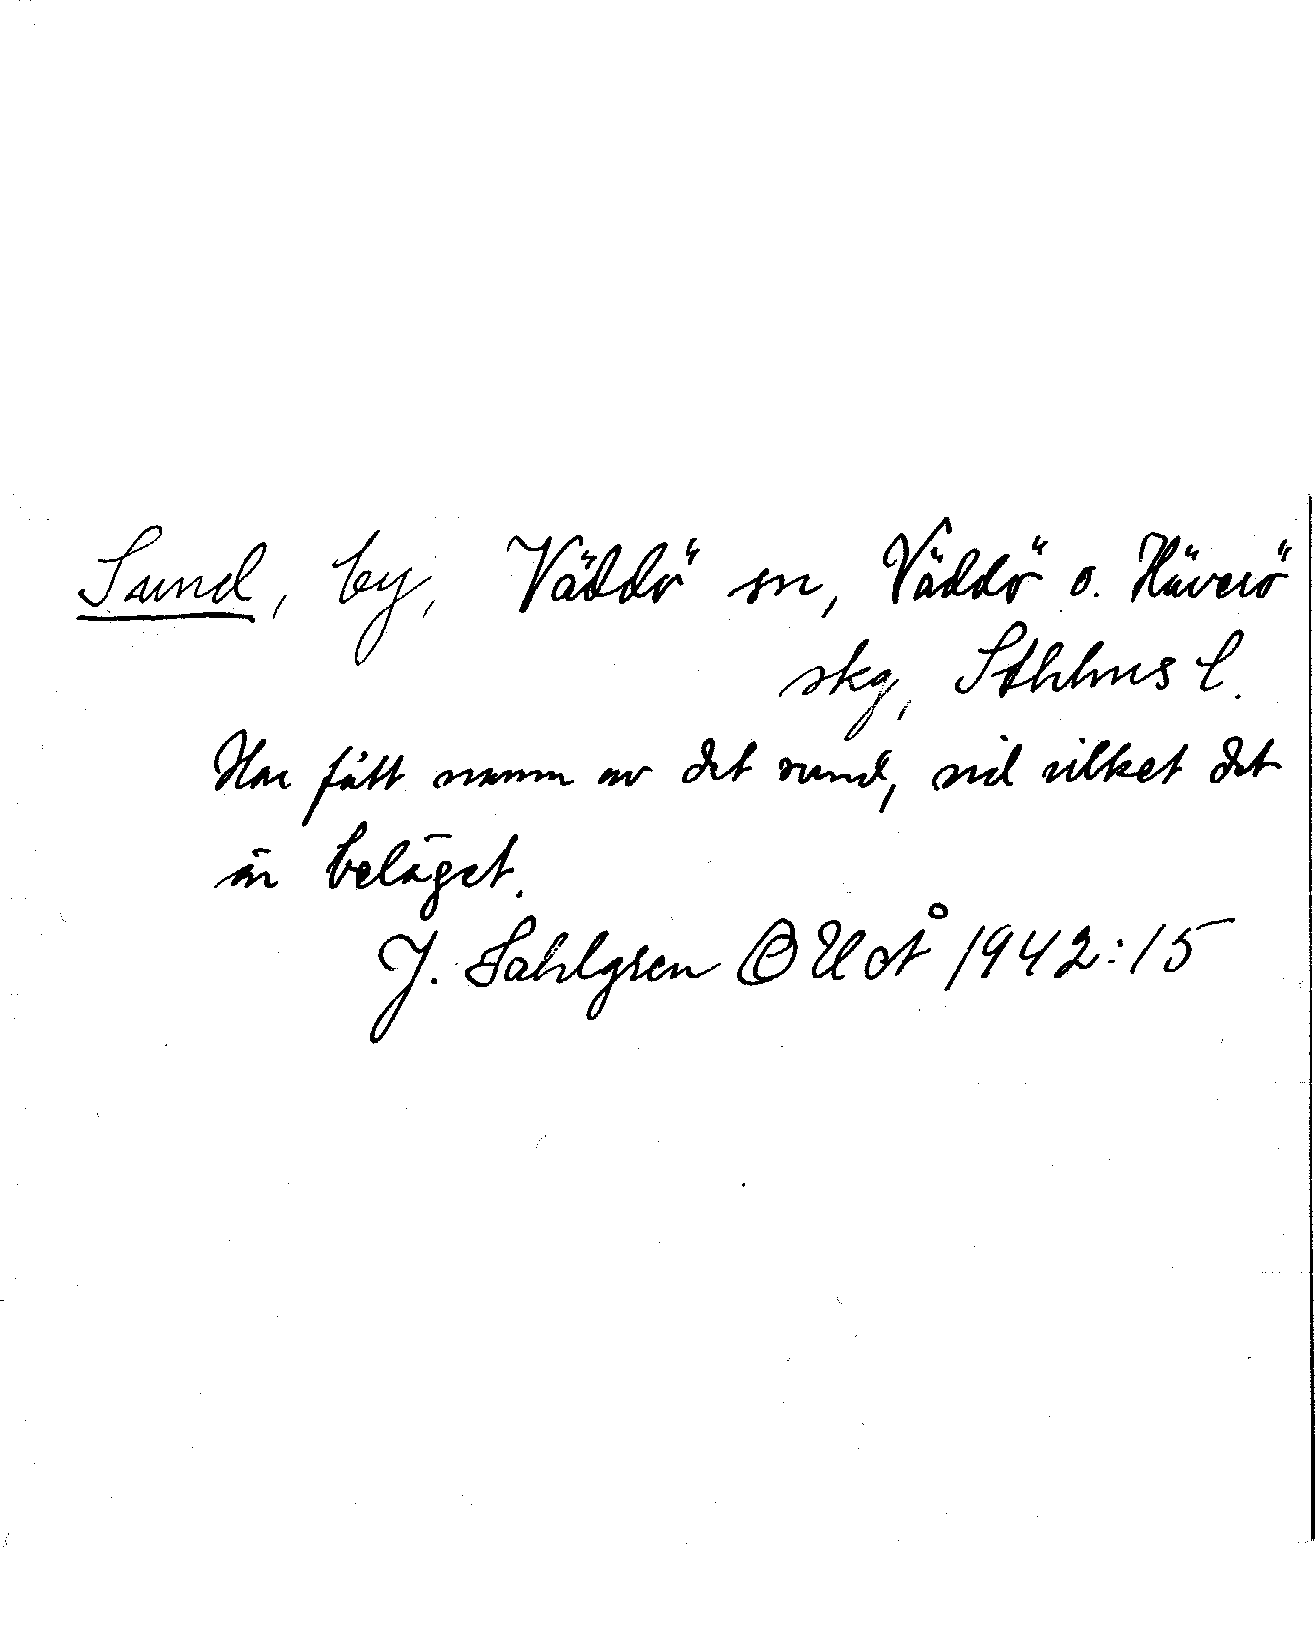 Sund, by, Väddö sn, Väddö o. Häverö
skg, Sthlms l.
Har fått namn av det sund, vid vilket det
är beläget.
J. Sahlgren ONUoÅ 1942:15